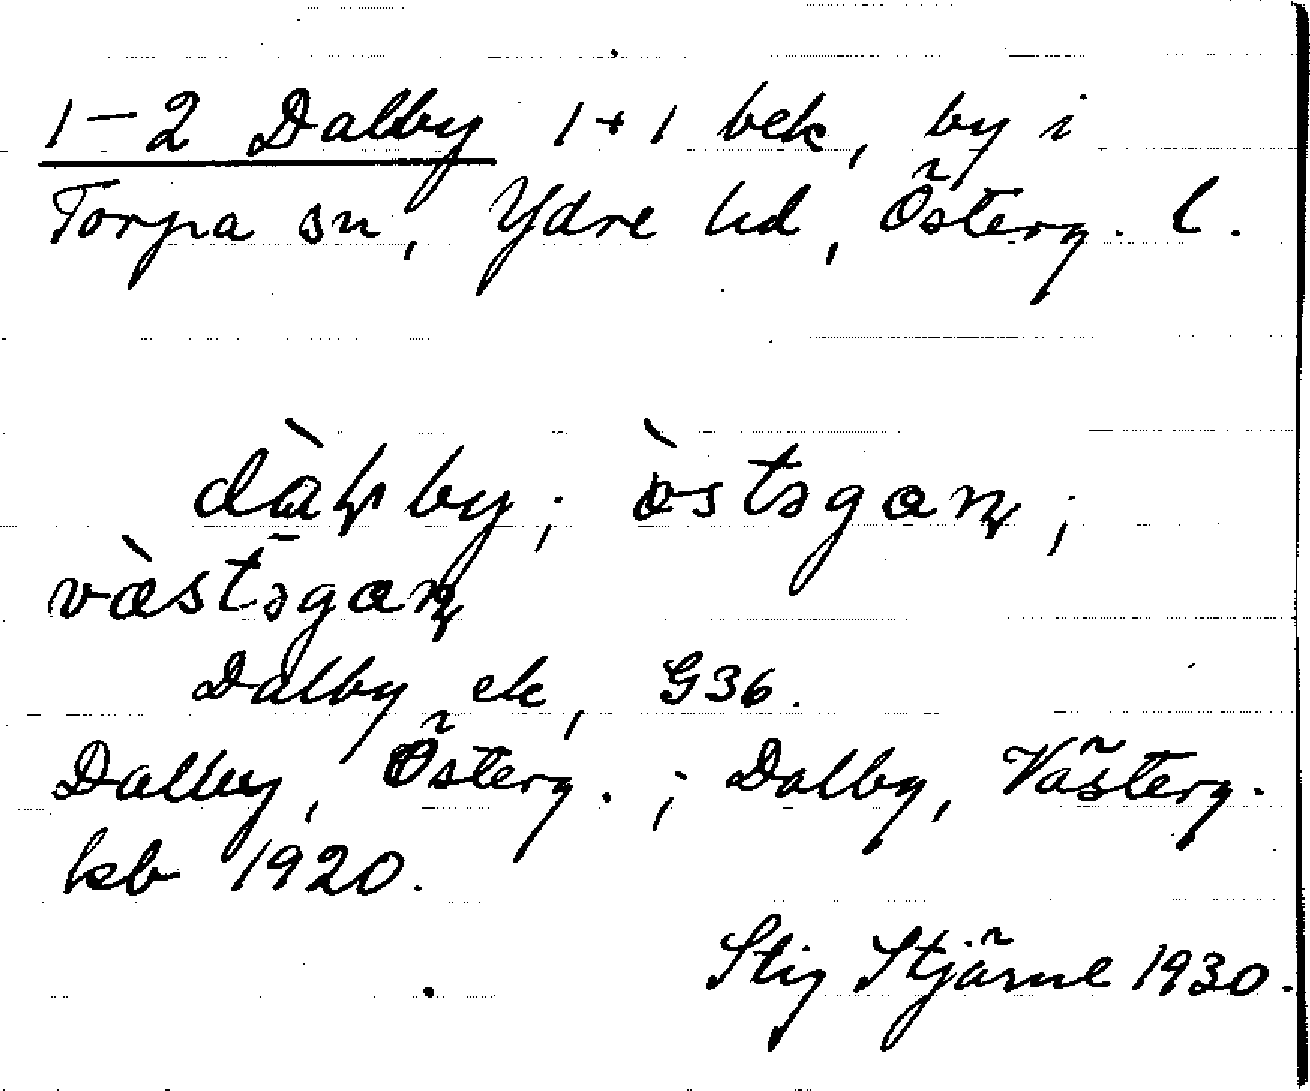 1-2 Dalby 1+1 bek, by i
Torpa sn, Ydre hd, Österg. l.
Dalby ek, G36.
Dalby, Österg. ; Dalby, Västerg.
kb 1920.
Stig Stjärne 1930.